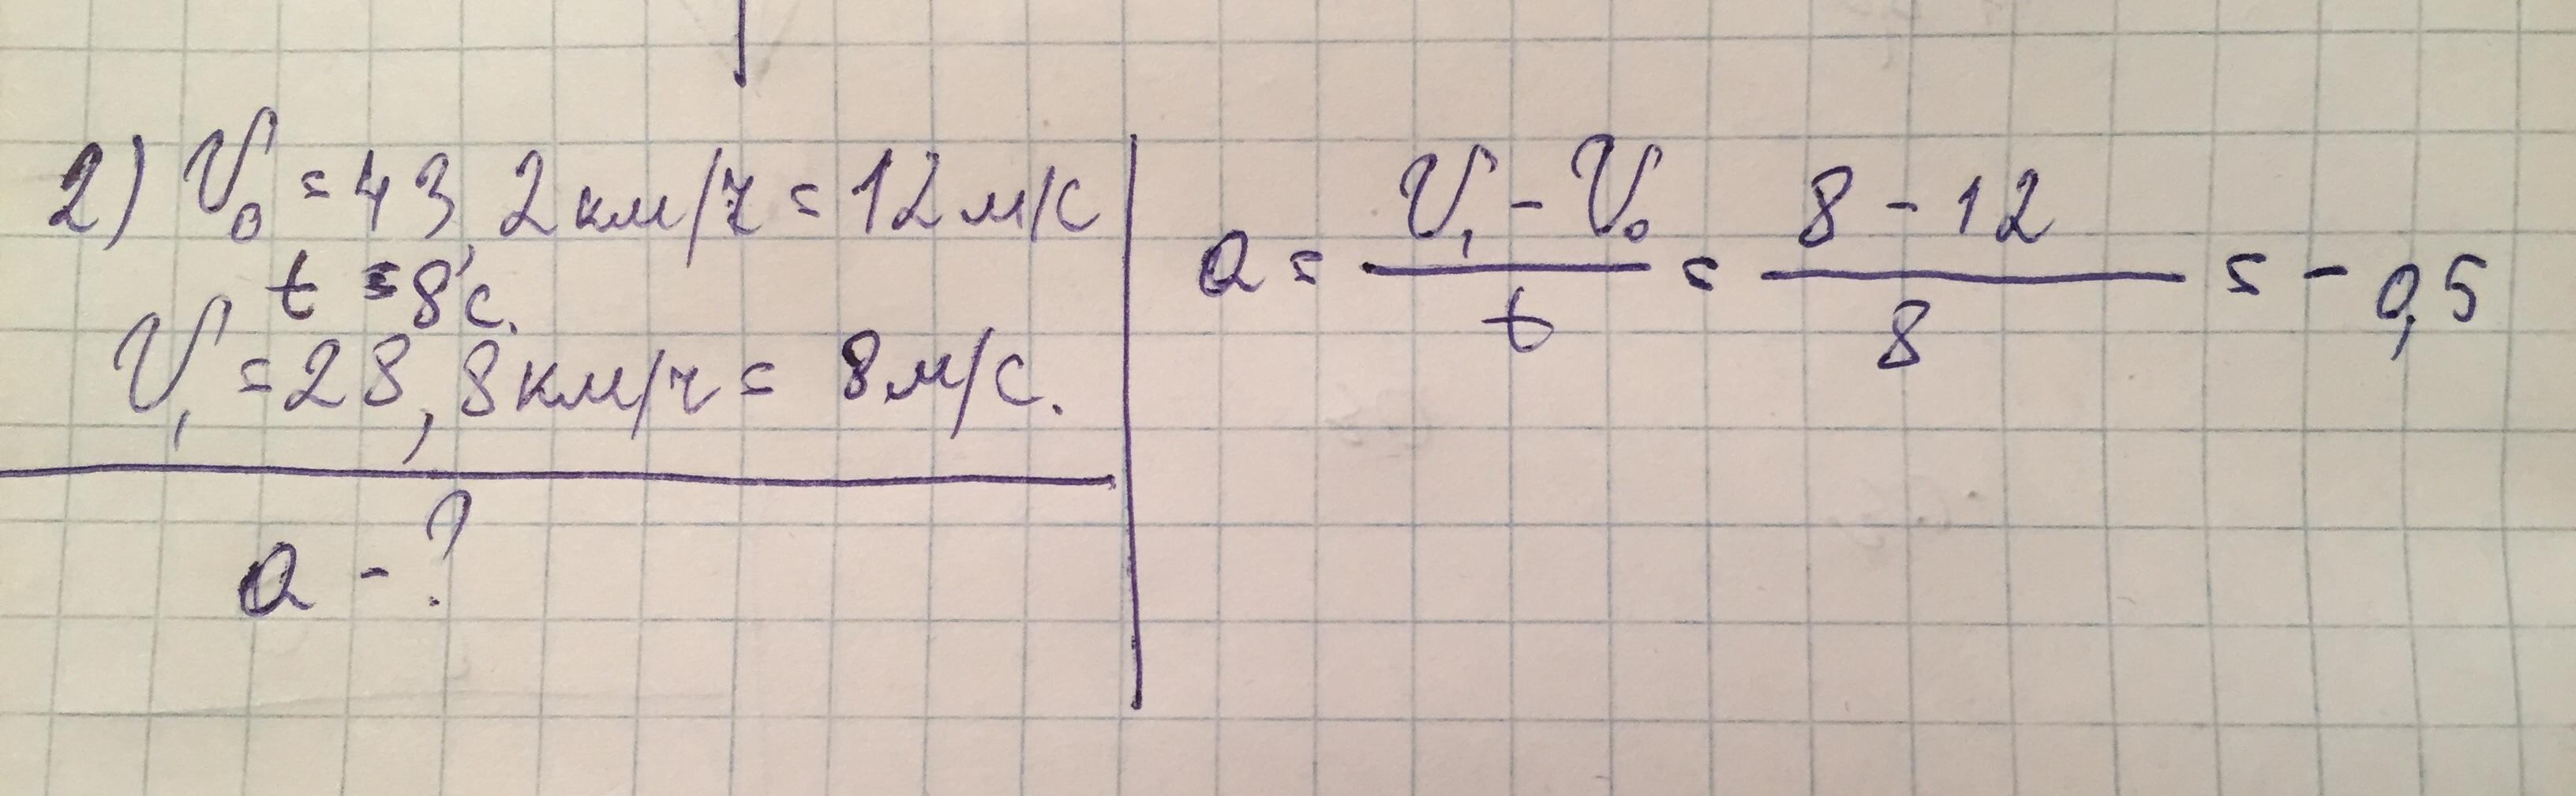 2) V₀ = 43,2 км/ч = 12 м/с
t = 8 с.
V₁ = 28,8 км/ч = 8 м/с.
a - ?
a = (V₁ - V₀) / t = (8 - 12) / 8 = - 0,5